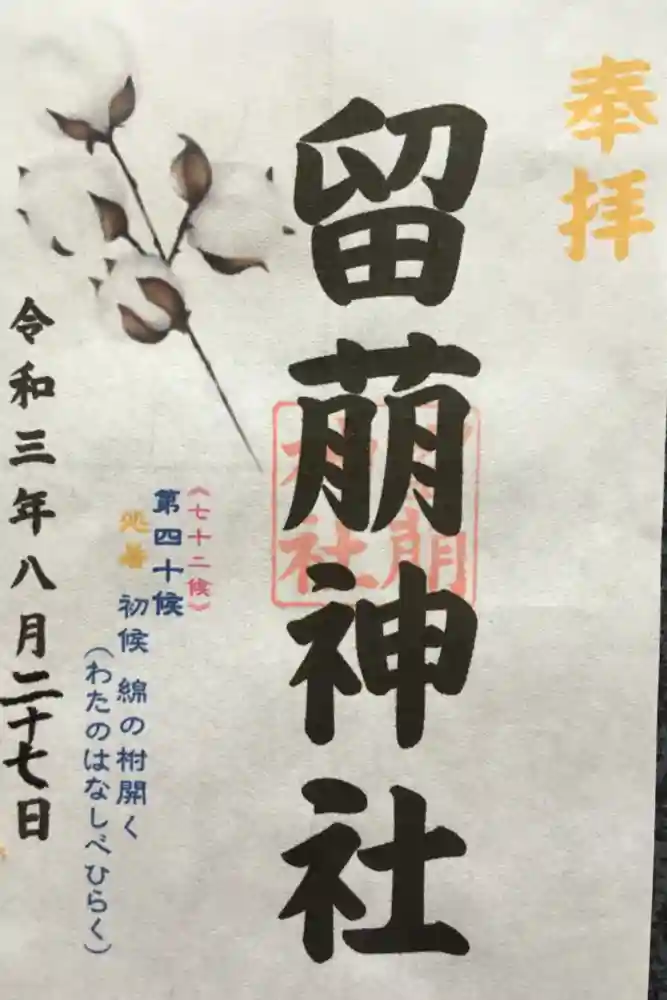 奉拝
留萌神社
《七十二候》
第四十候
処暑 初候 綿の柎開く
(わたのはなしべひらく)
令和三年八月二十七日